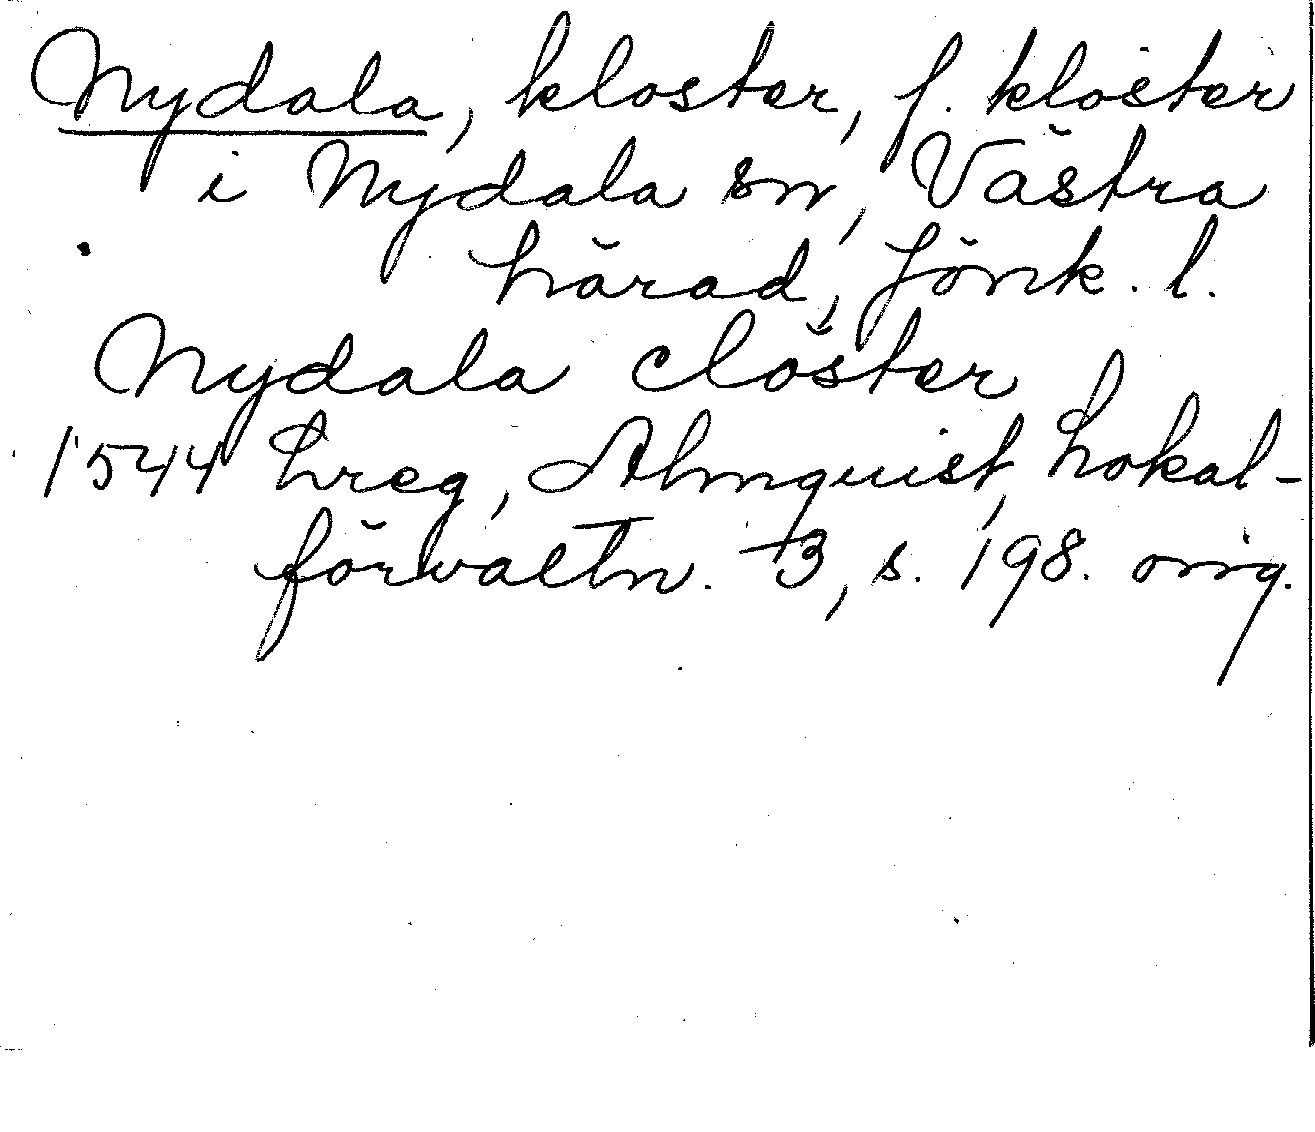 Nydala, kloster, f. kloster
i Nydala sn, Västra
härad, Jönk. l.
Nydala clöster
1544 Lreg, Almquist, Lokal-
förvaltn. 3, s. 198. orig.